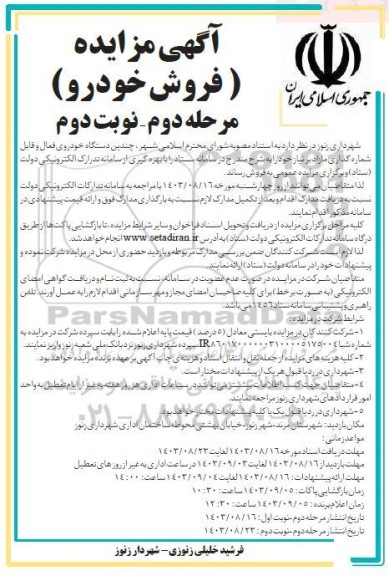 آگهی مزایده
( فروش خودرو)
مرحله دوم - نوبت دوم
جمهوری اسلامی ایران
شهرداری زنوز در نظر دارد به استناد مصوبه شورای محترم اسلامی شهر ، چندین دستگاه خودروی فعال و قابل
شماره گذاری مازاد بر نیاز خود را به شرح مندرج در سامانه ستاد را با بهره گیری از سامانه تدارک الکترونیکی دولت
(ستاد) و برگزاری مزایده عمومی به فروش رساند.
لذا متقاضیان می توانند از روز چهارشنبه مورخه ۱۴۰۳/۰۸/۱۶ با مراجعه به سامانه تدارکات الکترونیکی دولت
نسبت به دریافت مدارک اقدام و بعد از تکمیل مدارک لازم نسبت به بارگذاری مدارک فوق و ارائه قیمت پیشنهادی در
سامانه مذکور اقدام نمایند.
کلیه مراحل برگزاری مزایده از دریافت و تحویل اسناد فراخوان و سایر شرایط مزایده ، تا بازگشایی پاکت ها از طریق
درگاه سامانه تدارکات الکترونیکی دولت (ستاد) به آدرس www.setadiran.ir انجام خواهد شد.
لذا لازم است شرکت کنندگان ضمن بررسی مدارک مربوطه و بازدید حضوری از محل در مزایده شرکت نموده و
پیشنهادات خود را در سامانه دولت (ستاد) ارائه نمایند.
متقاضیان شرکت در مزایده در صورت عدم عضویت در سامانه، نسبت به ثبت نام و دریافت گواهی امضای
الکترونیکی (به صورت برخط) برای کلیه صاحبان امضای مجاز و مهر سازمانی اقدام لازم را به عمل آورند. تلفن
راهبری و پشتیبانی سامانه ستاد ۱۴۵۶ می باشد.
شرایط شرکت در مزایده :
۱- شرکت کنندگان در مزایده بایستی معادل (۵ درصد) قیمت پایه اعلام شده را بابت سپرده شرکت در مزایده به
شماره شبا سپرده شهرداری زنوز نزد بانک ملی شعبه زنوز واریز نمایند.
۲- کلیه هزینه های مزایده از جمله نقل و انتقال اسناد و هزینه ی چاپ آگهی بر عهده برنده مزایده خواهد بود.
۳- شهرداری در رد یا قبول هر یک از پیشنهادات مختار است.
۴- متقاضیان جهت کسب اطلاعات بیشتر می توانند در ساعات اداری هر روز هفته به غیر از ایام تعطیل به واحد
امور قراردادهای شهرداری زنوز مراجعه نمایند.
۵- شهرداری در رد یا قبول یک یا کلیه پیشنهادات مختار خواهد بود.
مکان بازدید: شهرستان مرند، شهر زنوز، خیابان بهشتی محوطه ساختمان اداری شهرداری زنوز
مواعد زمانی:
مهلت دریافت اسناد مورخه ۱۴۰۳/۰۸/۱۶ لغایت ۱۴۰۳/۰۸/۲۳
مهلت بازدید از ۱۴۰۳/۰۸/۱۶ لغایت ۱۴۰۳/۰۹/۰۳ در ساعت اداری به غیر از روز های تعطیل
مهلت ارائه پیشنهادات : ۱۴۰۳/۰۸/۱۶ لغایت ۱۴۰۳/۰۹/۰۴ ساعت: ۱۴:۰۰
زمان بازگشایی پاکات : ۱۴۰۳/۰۹/۰۵ ساعت: ۱۰:۳۰
زمان اعلام برنده : ۱۴۰۳/۰۹/۰۵ ساعت: ۱۲:۳۰
تاریخ انتشار مرحله دوم-نوبت اول : ۱۴۰۳/۰۸/۱۶
تاریخ انتشار مرحله دوم-نوبت دوم: ۱۴۰۳/۰۸/۲۳
فرشید خلیلی زنوزی – شهردار زنوز